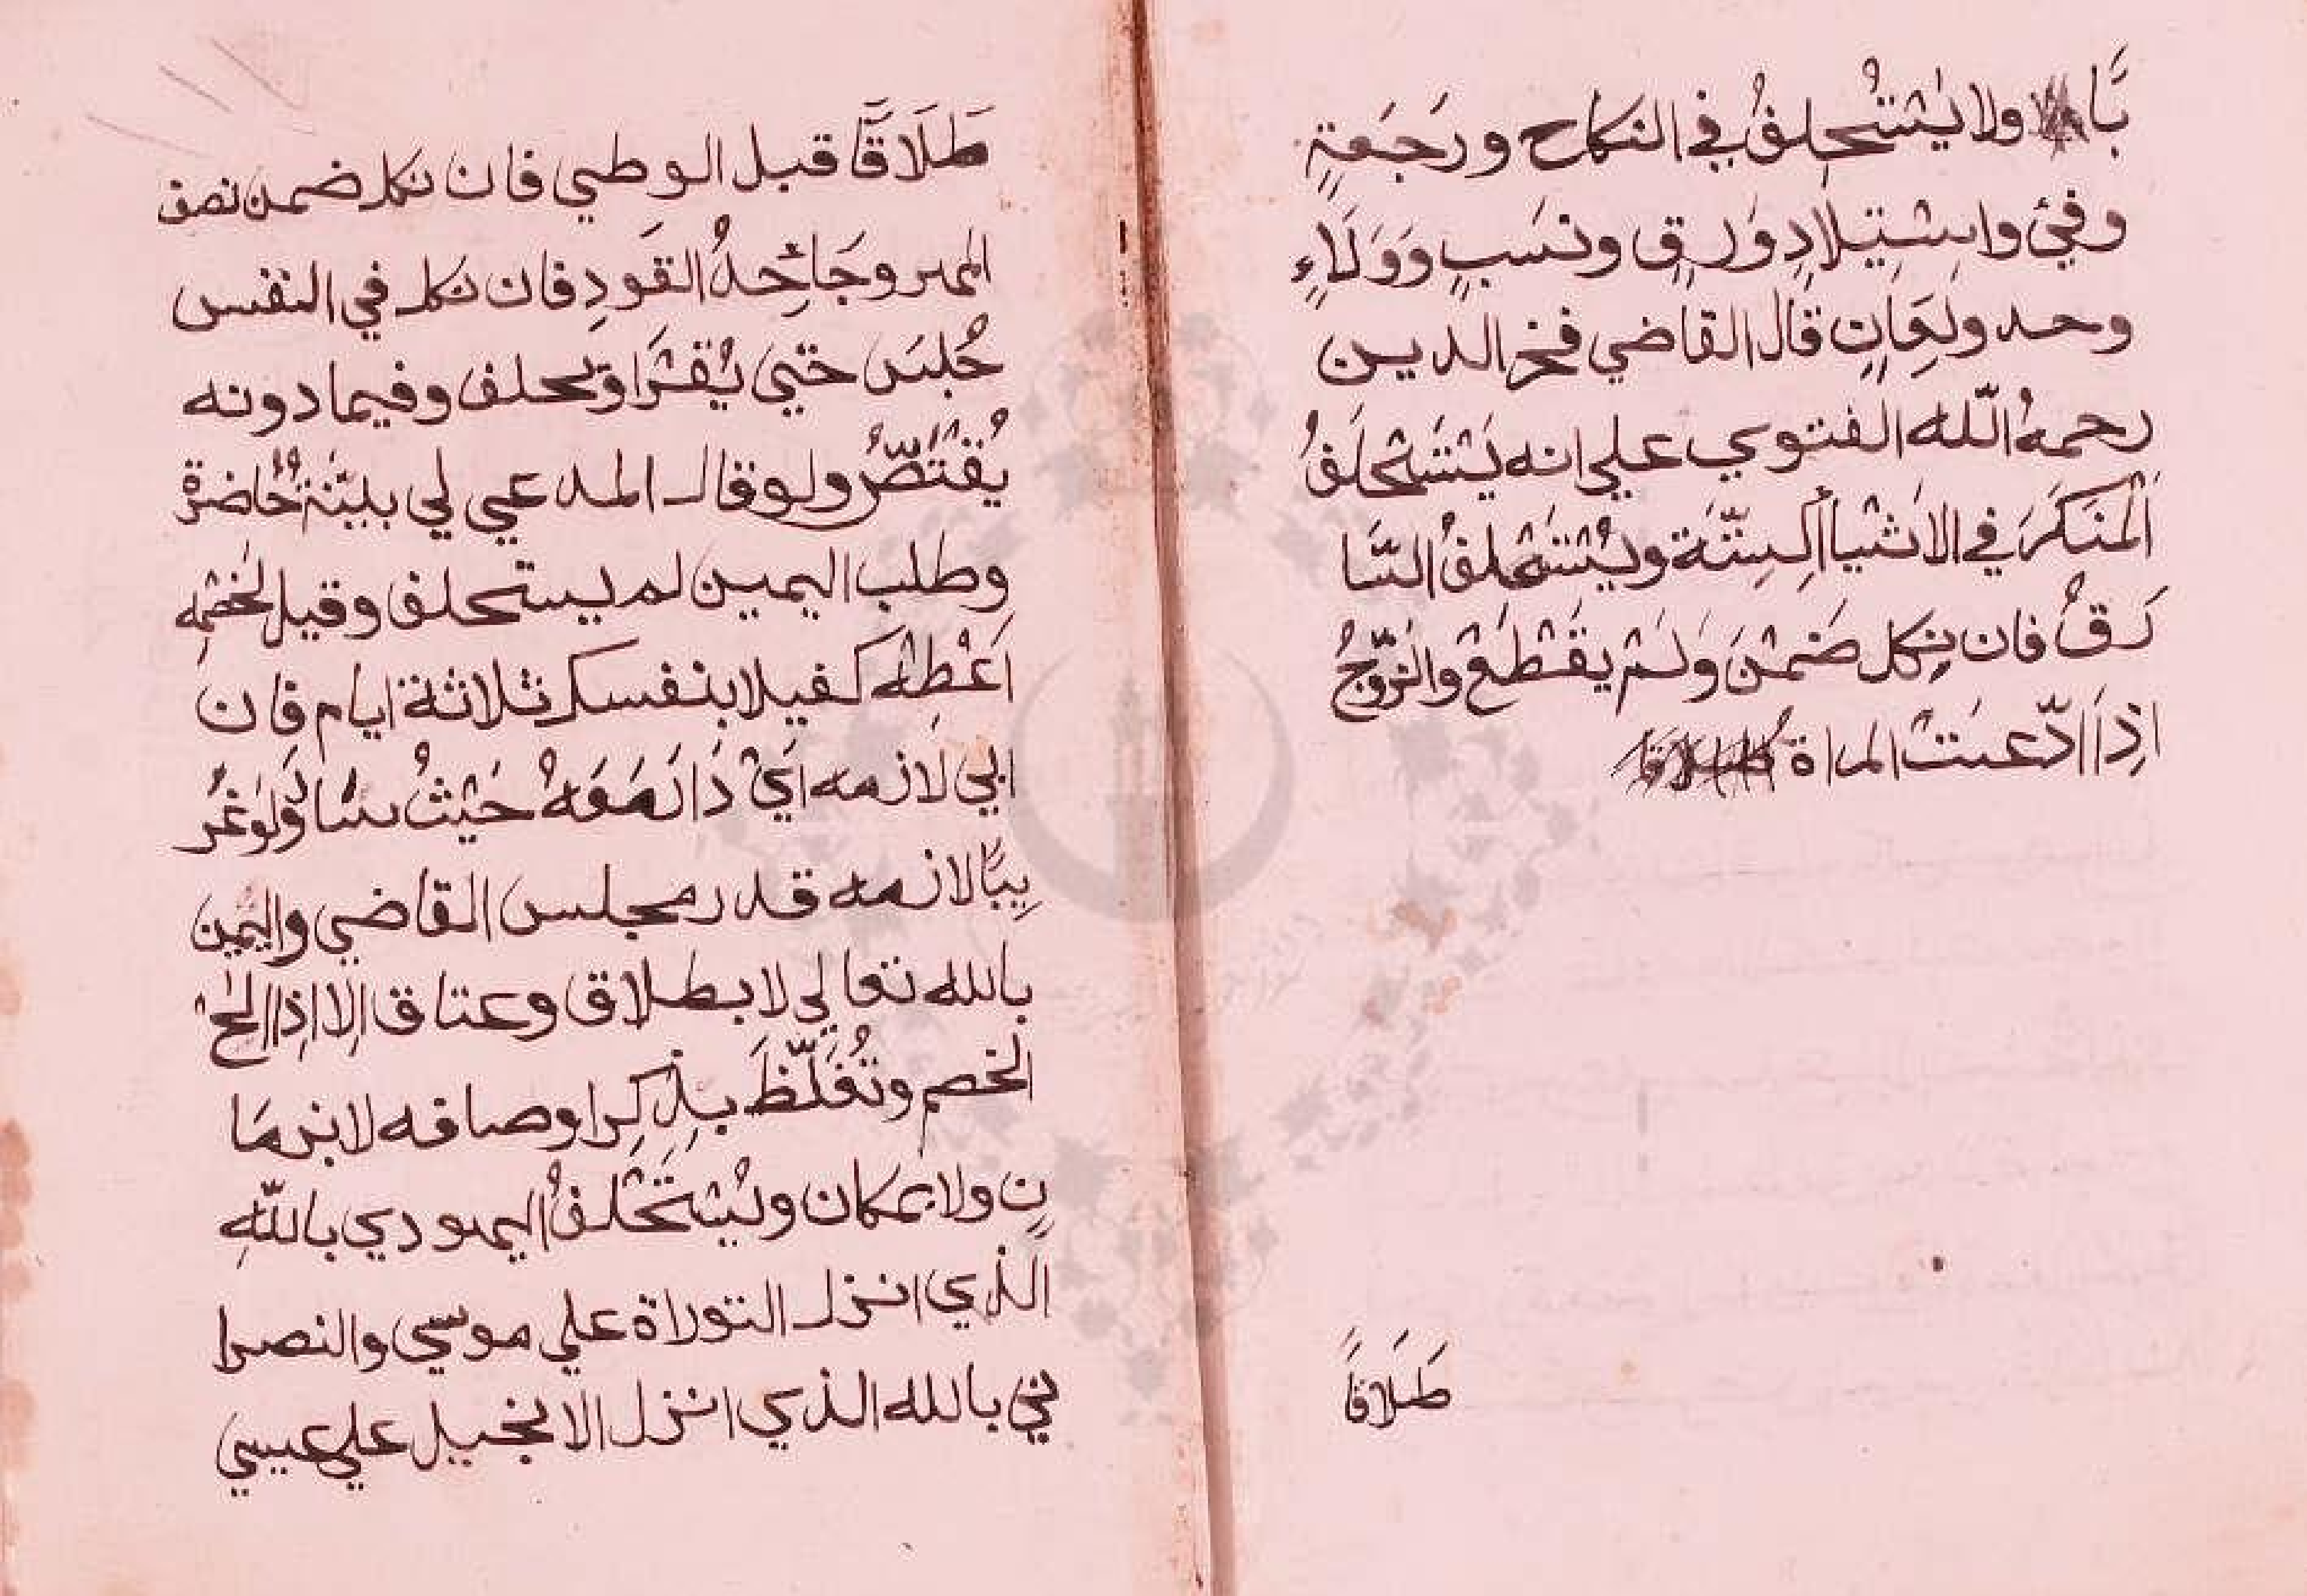 بًا ولا يُسْتَحلِفُ في النكاح ورَجَعَةٍ
وفيْ واسْتِيلَادٍ وَرِقٍ ونسَبٍ وَوَلَاءٍ
وحد ولِعَانٍ قال القاضي فخر الدين
رحمهُ اللّه الفتوي علي انه يُسْتَحْلَفُ
اَلْمُنْكَرَ في الاشْيا أَلسِتّةِ ويُسْتَحْلَفُ السّا
رَقُ فان نكل ضَمْنَ وَلمْ يقْطَعْ والزّوْجُ
اِذَا ادّعَتْ المراة
طَلَاقًا
طَلَاقًا قبل الوطي فان نكل ضمن نصف
المهر وجَاحِدُ القَوَدِ فان نكل في النفس
حُبِسَ حَتي يُقْرَّ او يحلف وفيما دونه
يُقْتَصُّ ولو قال المدعي لي بيّنة حاضرة
وطلب اليمين لم يستحلف وقيل لخصْمِه
اَعْطِهْ كفيلا بنفسك ثلاثة ايام فان
ابي لازمه اَيْ دَارَ مَعَهُ حَيْثُ سَارَ وَلَوْ غَرِ
يبًا لازمه قدر مجلس القاضي واليمين
بالله تعالي لا بطلاق وعتاق اِلا اِذا الحْ
الخصم وتُغَلّظَ بِذِكِر اوصافه لا بزمَا
نٍ ولا بمكان ويُسْتَحْلَفُ اليهودي باللّهِ
الذي انزل التوراة علي موسي والنصرا
ني بالله الذي انزل الانجيل علي عيسي